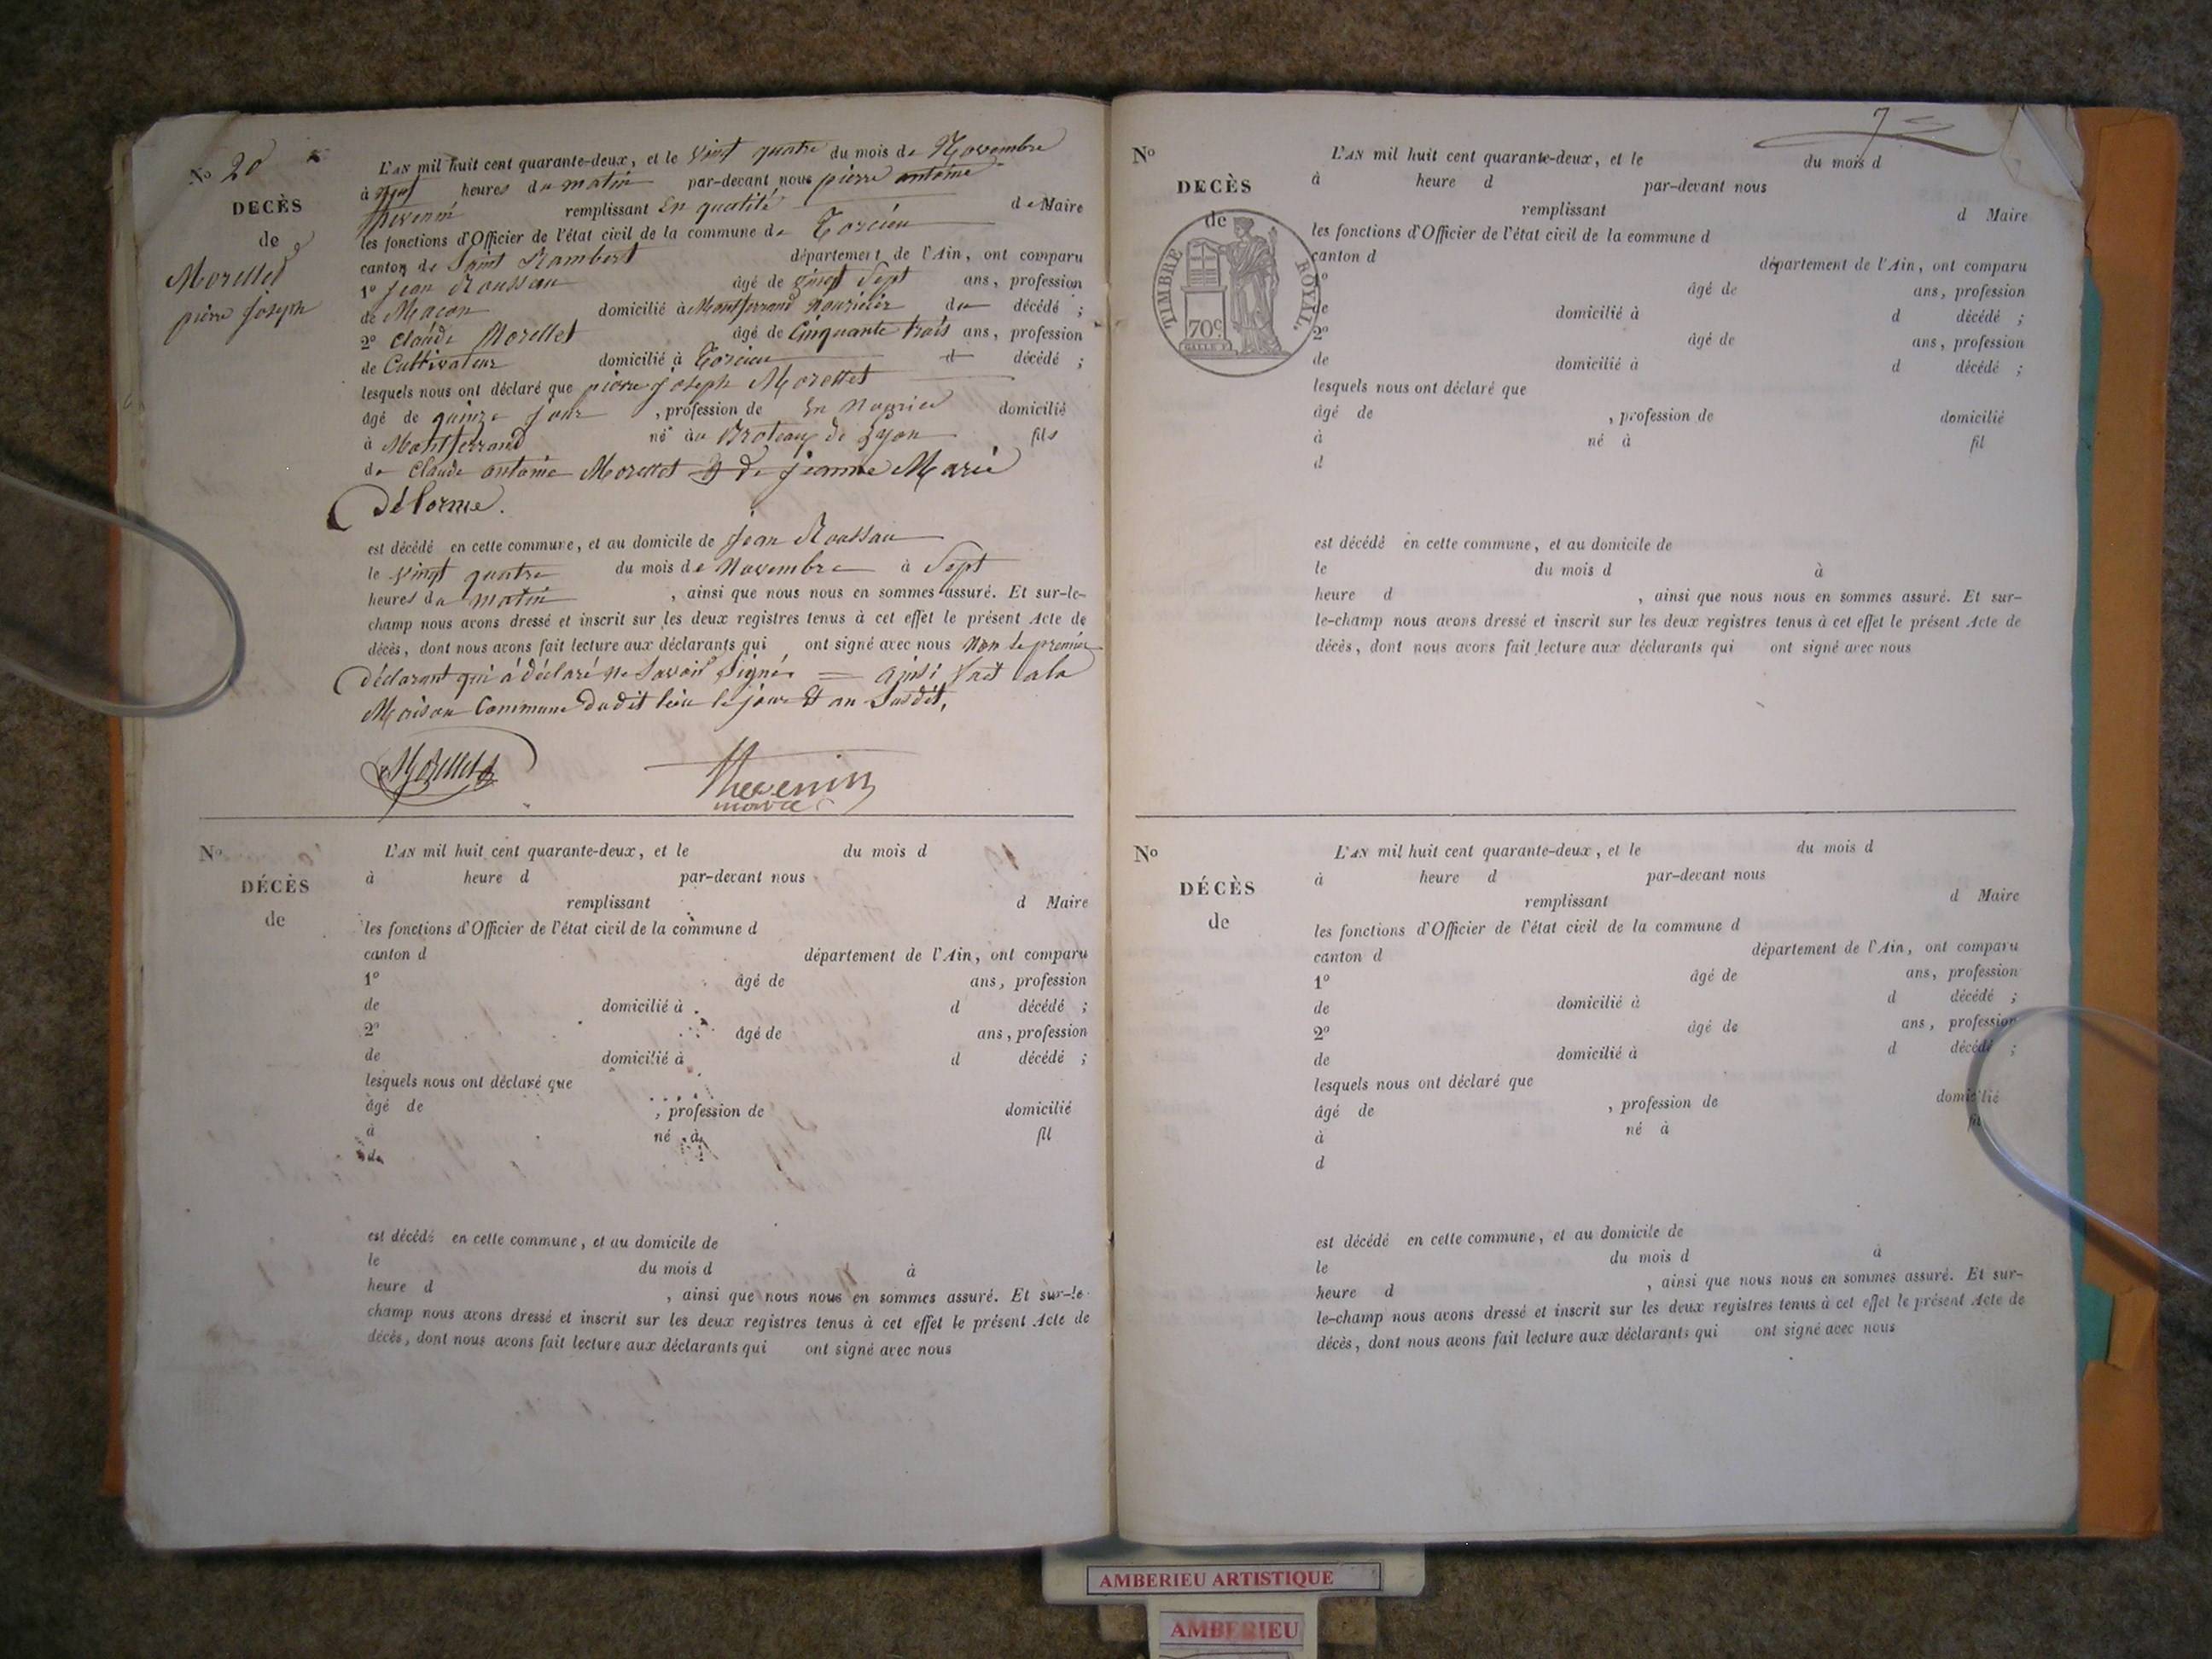 N° 20
DECÈS
de
Morellet
pierre joseph
L'AN mil huit cent quarante-deux, et le vint quatre du mois de Novembre
à neuf heures du matin par-devant nous pierre antoine
thevenin remplissant En qualité de Maire
les fonctions d'Officier de l'état civil de la commune de Torcieu
canton de Saint Rambert département de l'Ain, ont comparu
1° jean Roussau âgé de vingt Sept ans, profession
de Maçon domicilié à Montferrand nouricier du décédé ;
2° Claude Morellet âgé de Cinquante trois ans, profession
de Cultivateur domicilié à Torcieu d décédé ;
lesquels nous ont déclaré que pierre joseph Morellet
âgé de quinze jour , profession de En Nourice domicilié
à Montferrand né au Broteaux de Lyon fils
de Claude antoine Morellet & de jeanne Marie
Délorme.
est décédé en cette commune, et au domicile de jean Roussau
le vingt quatre du mois de Novembre à Sept
heures du matin , ainsi que nous nous en sommes assuré. Et sur-le-
champ nous avons dressé et inscrit sur les deux registres tenus à cet effet le présent Acte de
décès, dont nous avons fait lecture aux déclarants qui ont signé avec nous Non le premier
déclarant qui à déclaré ne Savoir Signé = ainsi fait à la
Maison Commune dudit lieu le jour & an Susdit,
Morellet Thevenin
maire
N°
DÉCÈS
de
L'AN mil huit cent quarante-deux, et le du mois d
à heure d par-devant nous
remplissant d Maire
les fonctions d'Officier de l'état civil de la commune d
canton d département de l'Ain, ont comparu
1° âgé de ans, profession
de domicilié à d décédé ;
2° âgé de ans, profession
de domicilié à d décédé ;
lesquels nous ont déclaré que
âgé de , profession de domicilié
à né à fil
de
est décédé en cette commune, et au domicile de
le du mois d à
heure d , ainsi que nous nous en sommes assuré. Et sur-le-
champ nous avons dressé et inscrit sur les deux registres tenus à cet effet le présent Acte de
décès, dont nous avons fait lecture aux déclarants qui ont signé avec nous
7
N°
DECÈS
de
TIMBRE ROYAL.
70c
L'AN mil huit cent quarante-deux, et le du mois d
à heure d par-devant nous
remplissant d Maire
les fonctions d'Officier de l'état civil de la commune d
canton d département de l'Ain, ont comparu
1° âgé de ans, profession
de domicilié à d décédé ;
2° âgé de ans, profession
de domicilié à d décédé ;
lesquels nous ont déclaré que
âgé de , profession de domicilié
à né à fil
d
est décédé en cette commune, et au domicile de
le du mois d à
heure d , ainsi que nous nous en sommes assuré. Et sur-
le-champ nous avons dressé et inscrit sur les deux registres tenus à cet effet le présent Acte de
décès, dont nous avons fait lecture aux déclarants qui ont signé avec nous
N°
DÉCÈS
de
L'AN mil huit cent quarante-deux, et le du mois d
à heure d par-devant nous
remplissant d Maire
les fonctions d'Officier de l'état civil de la commune d
canton d département de l'Ain, ont comparu
1° âgé de ans, profession
de domicilié à d décédé ;
2° âgé de ans, profession
de domicilié à d décédé ;
lesquels nous ont déclaré que
âgé de , profession de domicilié
à né à fil
d
est décédé en cette commune, et au domicile de
le du mois d à
heure d , ainsi que nous nous en sommes assuré. Et sur-
le-champ nous avons dressé et inscrit sur les deux registres tenus à cet effet le présent Acte de
décès, dont nous avons fait lecture aux déclarants qui ont signé avec nous
AMBERIEU ARTISTIQUE
AMBERIEU